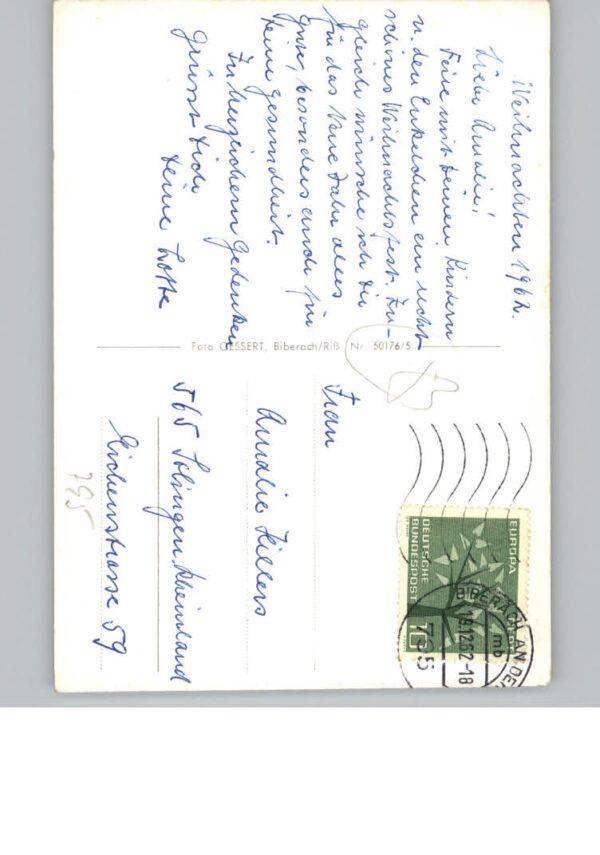 Weihnachten 1962.
Liebe Amalie!
Feire mit Deinen Kindern
u. den Enkelchen ein recht
schönes Weihnachtsfest. Zu-
gleich wünsche ich Dir
für das Neue Jahr alles
gute, besonders auch für
Deine Gesundheit.
In herzlichem Gedenken
grüsst Dich
Deine Lotte
Foto GESSERT, Biberach/Riß Nr. 50176/5
EUROPA
DEUTSCHE
BUNDESPOST
10
BIBERACH AN DER
mb
18.12.62-18
795
Frau
Amalie Hillers
565 Solingen Rheinland
Eichenstrasse 59
795